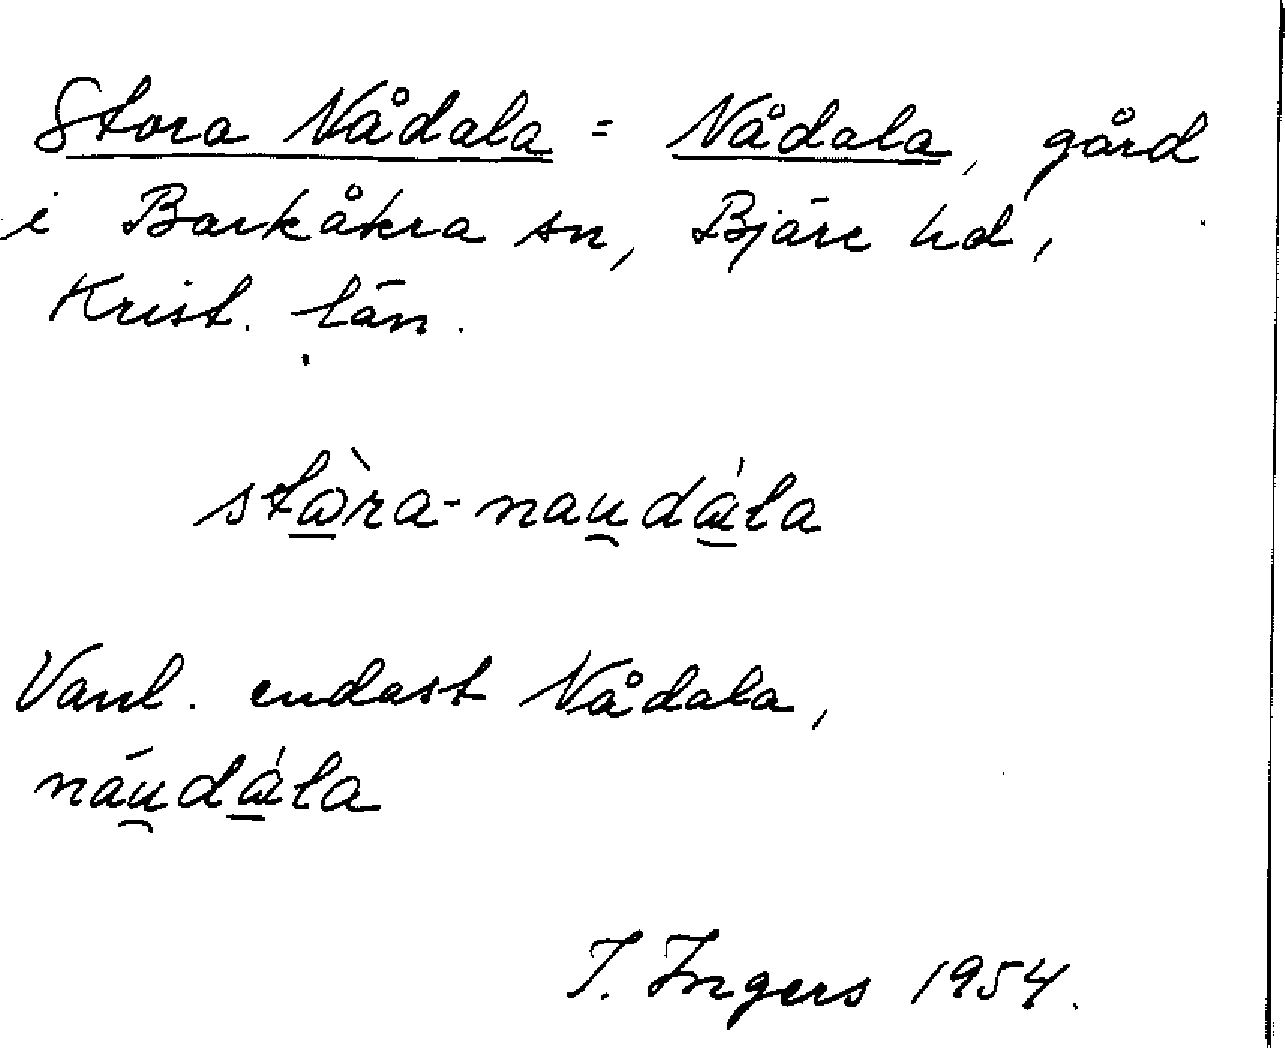 Stora Nådala = Nådala, gård
i Barkåkra sn, Bjäre hd,
Krist. län.
stɷ̀ra-nau̯dála
Vanl. endast Nådala,
náu̯dála
I. Ingers 1954.